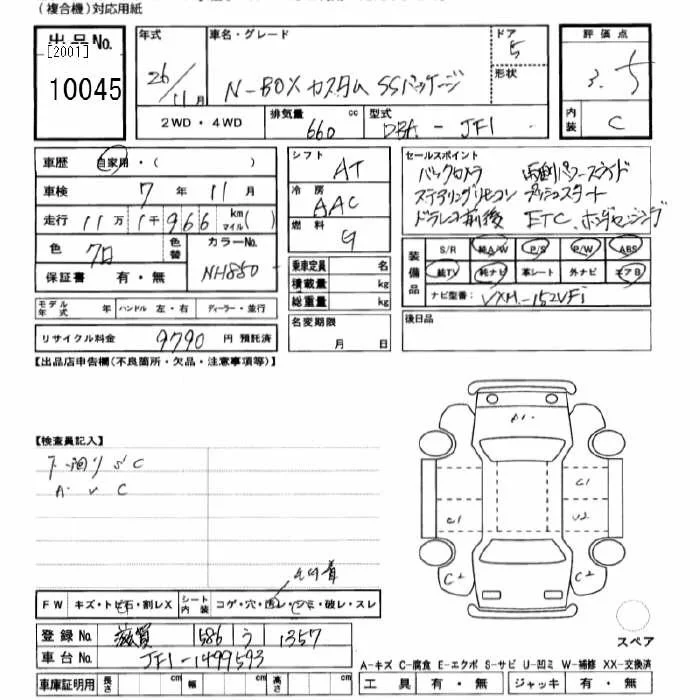 (複合機)対応用紙
出品No. 年式 車名・グレード ドア 評価点
[2001] 5
10045 26/11月 N-BOX カスタム SSパッケージ 形状 3.5
2WD・4WD 排気量 660 cc 型式 DBA-JF1 内装 C
車歴 自家用・( )
車検 7年11月
走行 11万1千966 km マイル( )
色 黒 色替 カラーNo. NH850
保証書 有・無
モデル年式 年 ハンドル 左・右 ディーラー・並行
リサイクル料金 9790 円 預託済
シフト AT
冷房 AAC
燃料 G
乗車定員 名
積載量 kg
総重量 kg
名変期限 月 日
セールスポイント
バックカメラ 両側パワースライド
ステアリングリモコン プッシュスタート
ドラレコ前後 ETC ホンダセンシング
装備品 S/R 純A/W P/S P/W ABS
純TV 純ナビ 革シート 外ナビ エアB
ナビ型番: VXM-152VFi
後日品
【出品店申告欄(不良箇所・欠品・注意事項等)】
【検査員記入】
下廻りSC
A1
C1
C1 U2
C2 C2
スペア
FW キズ・トビ石・割レX シート内装 コゲ・穴・シミ・破レ・スレ
登録No. 滋賀 586 う 1357
車台No. JF1-1499593
車庫証明用 長さ cm 幅 cm 高さ cm
A-キズ C-腐食 E-エクボ S-サビ U-凹ミ W-補修 XX-交換済
工具 有・無 ジャッキ 有・無